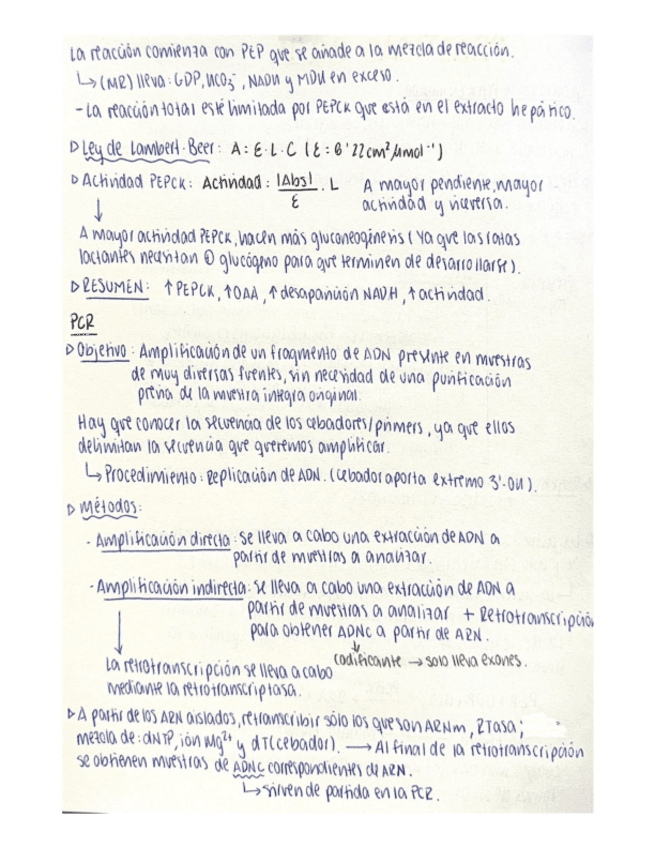 La reacción comienza con PEP que se añade a la mezcla de reacción.
↳ (MR) lleva: GDP, HCO3⁻, NADH y MDH en exceso.
- La reacción total esté limitada por PEPCK que está en el extracto hepático.
▷ Ley de Lambert-Beer: A = ε · L · C (ε = 6'22 cm² μmol⁻¹)
▷ Actividad PEPCK: Actividad: |Abs| / ε · L A mayor pendiente, mayor
actividad y viceversa.
↓
A mayor actividad PEPCK, hacen más gluconeogénesis (Ya que las ratas
lactantes necesitan ⊕ glucógeno para que terminen de desarrollarse).
▷ RESUMEN: ↑ PEPCK, ↑ OAA, ↑ desaparición NADH, ↑ actividad.
PCR
▷ Objetivo: Amplificación de un fragmento de ADN presente en muestras
de muy diversas fuentes, sin necesidad de una purificación
previa de la muestra íntegra original.
Hay que conocer la secuencia de los cebadores/primers, ya que ellos
delimitan la secuencia que queremos amplificar.
↳ Procedimiento: Replicación de ADN. (Cebador aporta extremo 3'-OH).
▷ Métodos:
- Amplificación directa: Se lleva a cabo una extracción de ADN a
partir de muestras a analizar.
- Amplificación indirecta: Se lleva a cabo una extracción de ADN a
partir de muestras a analizar + Retrotranscripción
para obtener ADNc a partir de ARN.
↓
codificante → solo lleva exones.
La retrotranscripción se lleva a cabo
mediante la retrotranscriptasa.
▷ A partir de los ARN aislados, retranscribir sólo los que son ARNm, RTasa;
mezcla de: dNTP, ión Mg²⁺ y dT (cebador). → Al final de la retrotranscripción
se obtienen muestras de ADNc correspondientes al ARN.
↳ sirven de partida en la PCR.